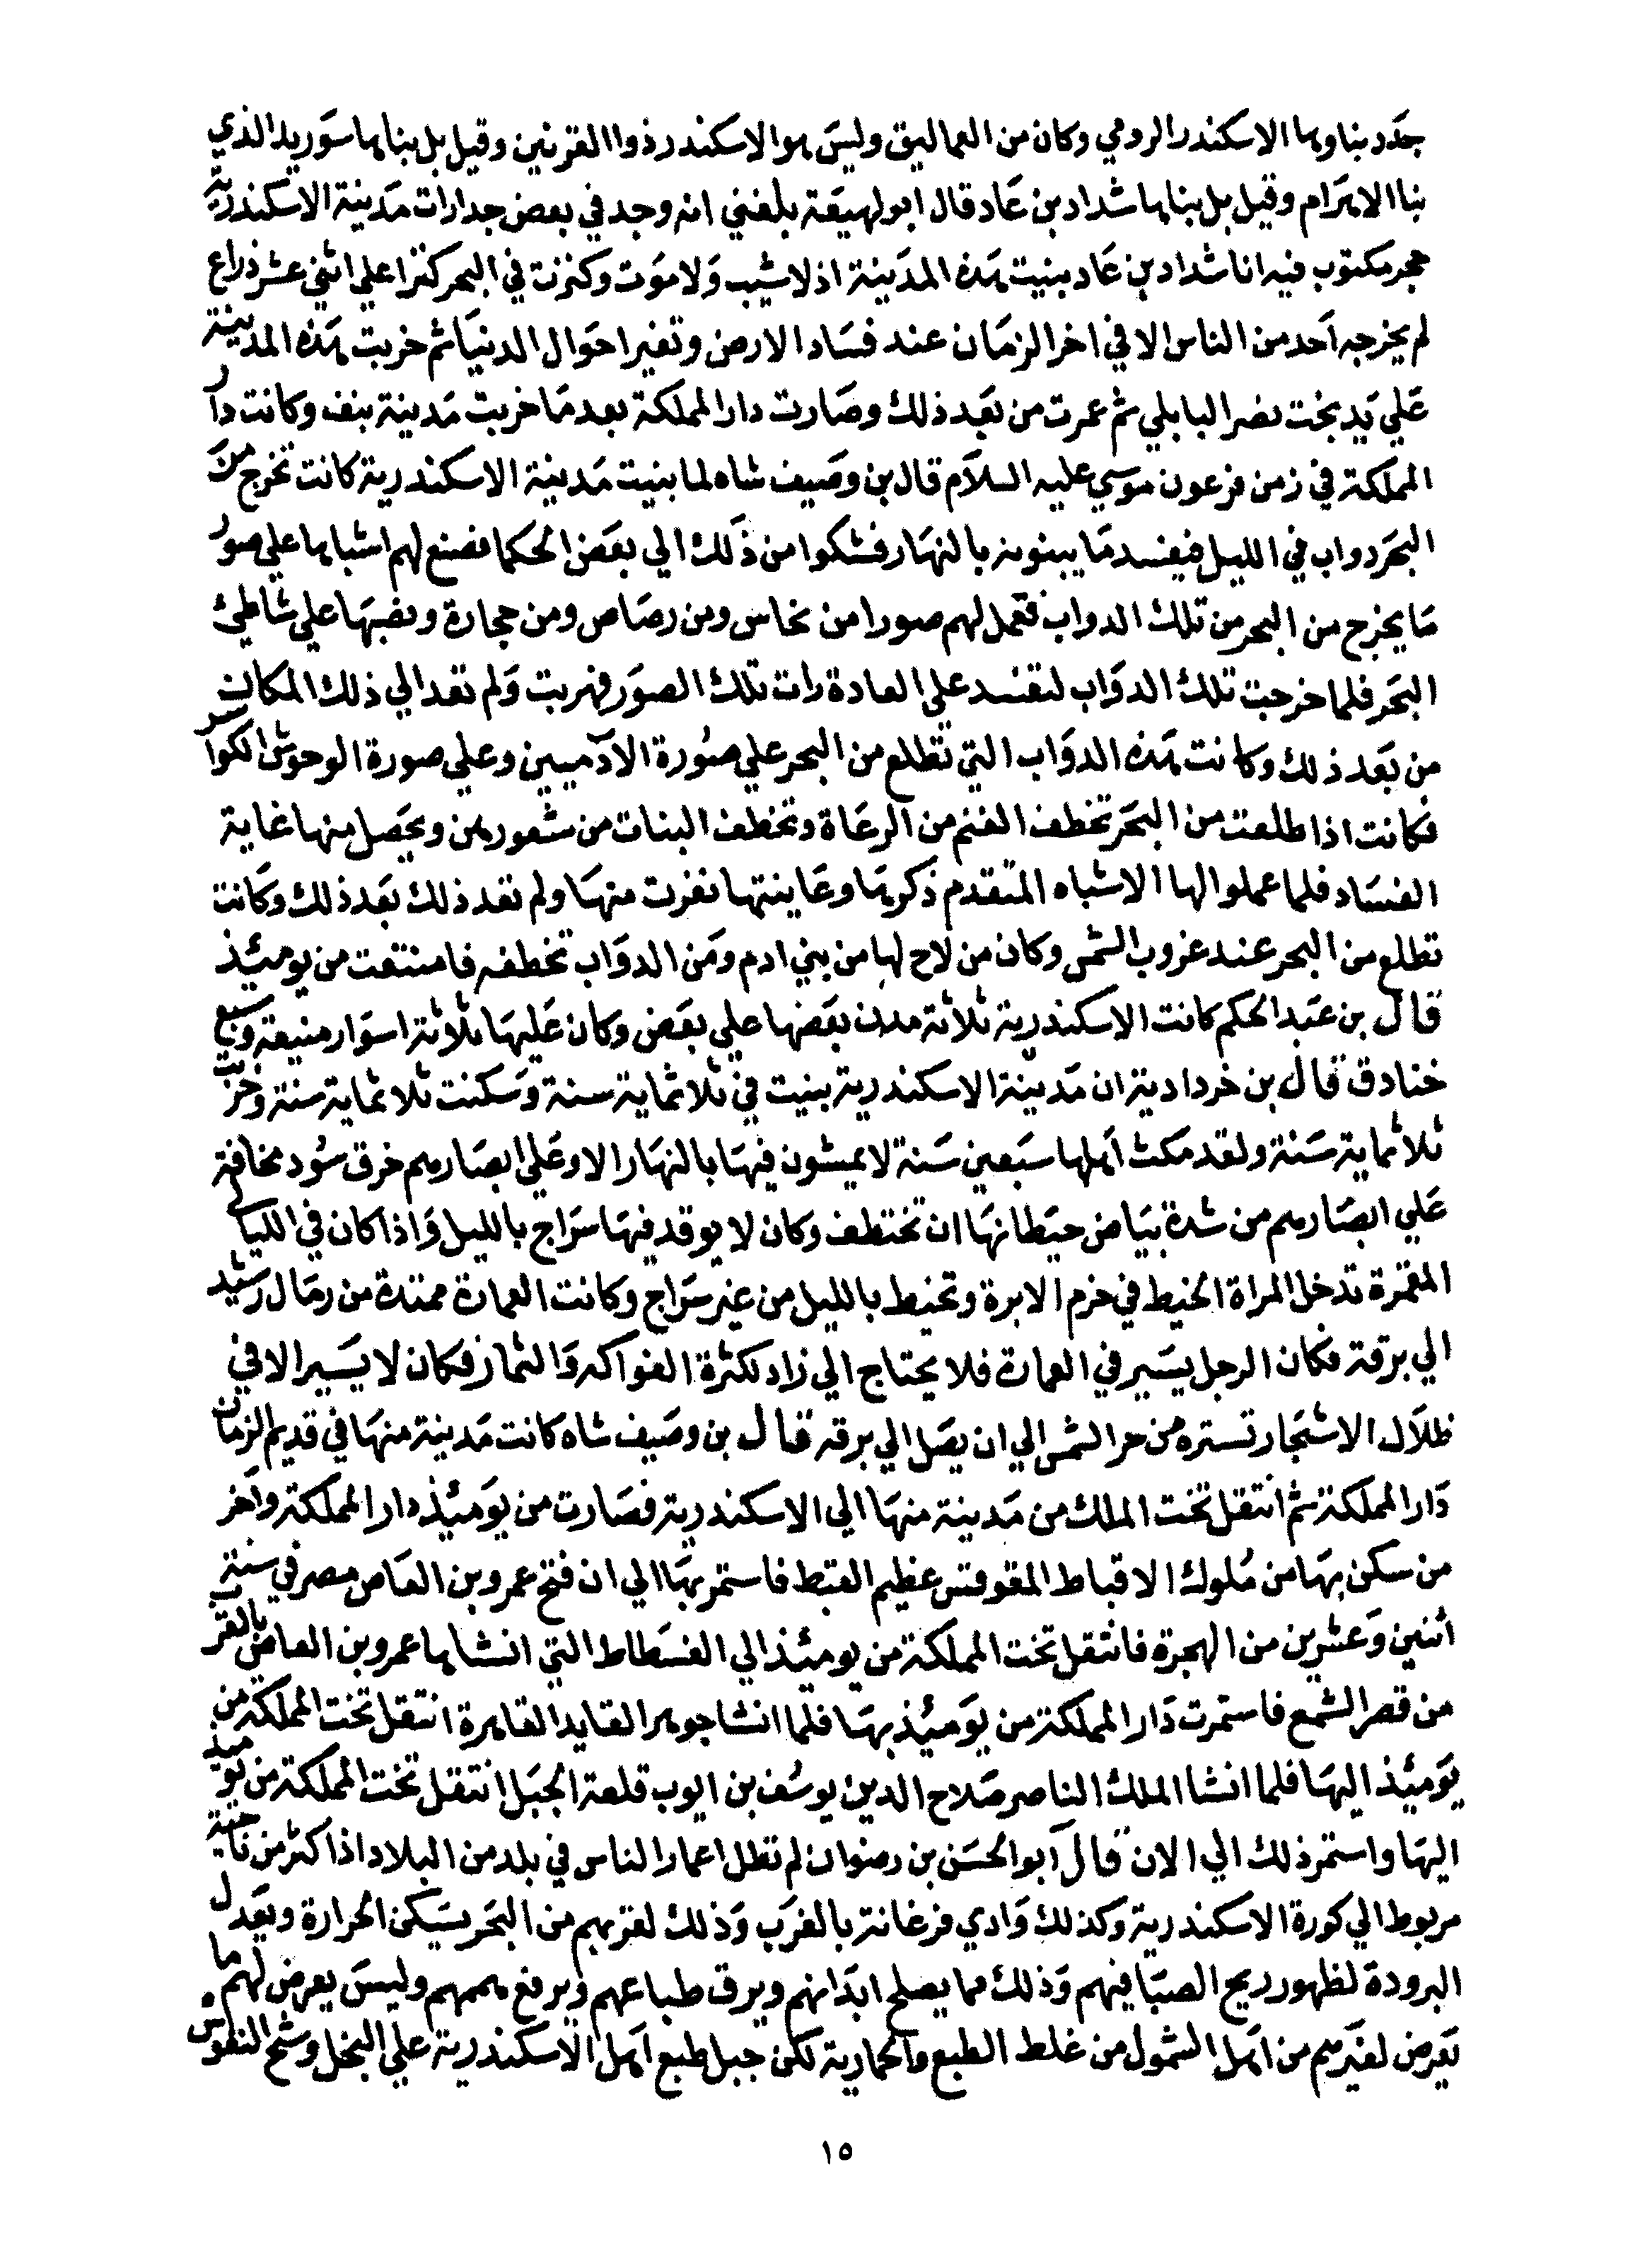 جدد بناوها الاسكندر الرومي وكان من العماليق وليس هو الاسكندر ذوا القرنين وقيل بل بناها سوريد الذي
بنا الاهرام وقيل بل بناها شداد بن عاد قال ابو لهيعة بلغني انه وجد في بعض جدارات مدينة الاسكندرية
حجر مكتوب فيه انا شداد بن عاد بنيت هذه المدينة اذ لا شيب ولا موت وكنزت في البحر كنزا علي اثني عشر ذراع
لم يخرجه احد من الناس الا في اخر الزمان عند فساد الارض وتغير احوال الدنيا ثم خربت هذه المدينة
علي يد بخت نصر البابلي ثم عمرت من بعد ذلك وصارت دار المملكة بعد ما خربت مدينة بنف وكانت دار
المملكة في زمن فرعون موسي عليه السلام قال بن وصيف شاه لما بنيت مدينة الاسكندرية كانت تخرج من
البحر دواب في الليل فيفسد ما يبنونه بالنهار فشكوا من ذلك الي بعض الحكما فصنع لهم اشباها علي صور
ما يخرج من البحر من تلك الدواب فعمل لهم صورا من نحاس ومن رصاص ومن حجارة ونصبها علي شاطئ
البحر فلما خرجت تلك الدواب لتفسد علي العادة رات تلك الصور فهربت ولم تعد الي ذلك المكان
من بعد ذلك وكانت هذه الدواب التي تطلع من البحر علي صورة الادميين وعلي صورة الوحوش الكواسر
فكانت اذا طلعت من البحر تخطف الغنم من الرعاة وتخطف البنات من شعورهن ويحصل منها غاية
الفساد فلما عملوا لها الاشباه المتقدم ذكرها وعاينتها نفرت منها ولم تعد ذلك بعد ذلك وكانت
تطلع من البحر عند غروب الشمس وكان من لاح لها من بني ادم ومن الدواب تخطفه فامتنعت من يومئذ
قال بن عبد الحكم كانت الاسكندرية ثلاثة مدن بعضها علي بعض وكان عليها ثلاثة اسوار منيعة وسبع
خنادق قال بن خردادبة ان مدينة الاسكندرية بنيت في ثلاثماية سنة وسكنت ثلاثماية سنة وخربت
ثلاثماية سنة ولقد مكث اهلها سبعين سنة لا يمشون فيها بالنهار الا وعلي ابصارهم خرق سود مخافة
علي ابصارهم من شدة بياض حيطانها ان تختطف وكان لا يوقد فيها سراج بالليل واذا كان في الليالي
المقمرة تدخل المراة الخيط في خرم الابرة وتخيط بالليل من غير سراج وكانت العمارة ممتدة من رمال رشيد
الي برقة فكان الرجل يسير في العمارة فلا يحتاج الي زاد لكثرة الفواكه والثمار فكان لا يسير الا في
ظلال الاشجار تستره من حر الشمس الي ان يصل الي برقه قال بن وصيف شاه كانت مدينة منها في قديم الزمان
دار المملكة ثم انتقل تخت الملك من مدينة منها الي الاسكندرية فصارت من يومئذ دار المملكة واخر
من سكن بها من ملوك الاقباط المقوقس عظيم القبط فاستمر بها الي ان فتح عمرو بن العاص مصر في سنة
اثنين وعشرين من الهجرة فانتقل تخت المملكة من يومئذ الي الفسطاط التي انشاها عمرو بن العاص بالقرب
من قصر الشمع فاستمرت دار المملكة من يومئذ بها فلما انشا جوهر القايد القاهرة انتقل تخت المملكة من
يومئذ اليها فلما انشا الملك الناصر صلاح الدين يوسف بن ايوب قلعة الجبل انتقل تخت المملكة من يوميذ
اليها واستمر ذلك الي الان قال ابو الحسن بن رضوان لم تطل اعمار الناس في بلد من البلاد اذا كثر من ناحية
مربوط الي كورة الاسكندرية وكذلك وادي فرغانة بالغرب وذلك لقربهم من البحر يسكن الحرارة ويعدل
البرودة لظهور ريح الصبا فيهم وذلك مما يصلح ابدانهم ويرق طباعهم ويرفع هممهم وليس يعرض لهم ما
يعرض لغيرهم من اهل الشمول من غلظ الطبع والحمارية لكن جبل طبع اهل الاسكندرية علي البخل وشح النفوس
١٥